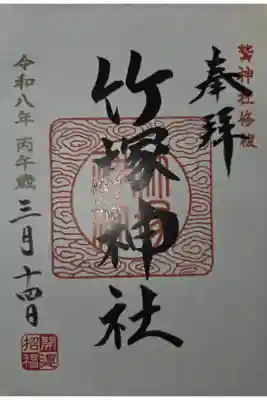 鷲神社修複
奉拝
竹塚神社
令和八年 丙午歳
三月十四日
開運招福